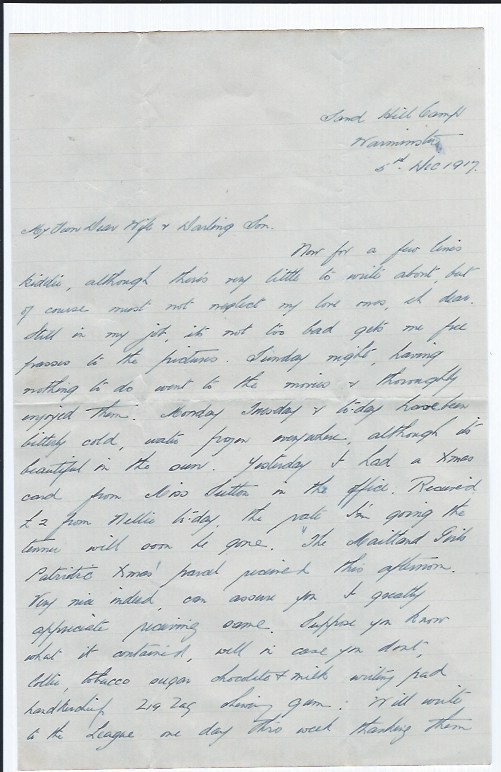 Sand Hill Camp
Warminster
5th Dec 1917.
My Own Dear Wife & Darling Son.
Now for a few lines
kiddie, although there's very little to write about, but
of course must not neglect my love ones, eh dear.
Still in my job, it's not too bad gets me free
passes to the pictures. Sunday night, having
nothing to do went to the movies & thoroughly
enjoyed them. Monday Tuesday & to-day have been
bitterly cold, water frozen everywhere, although it's
beautiful in the sun. Yesterday I had a Xmas
card from Miss Sutton in the office. Received
£2 from Nellie to-day, the rate I'm going the
tenner will soon be gone. "The Maitland Girls
Patriotic Xmas' parcel received this afternoon.
Very nice indeed, can assure you I greatly
appreciate receiving same. Suppose you know
what it contained, well in case you dont,
tobacco sugar chocolate & milk writing pad
handkerchief Zig Zag chewing gum. Will write
to the League one day this week thanking them